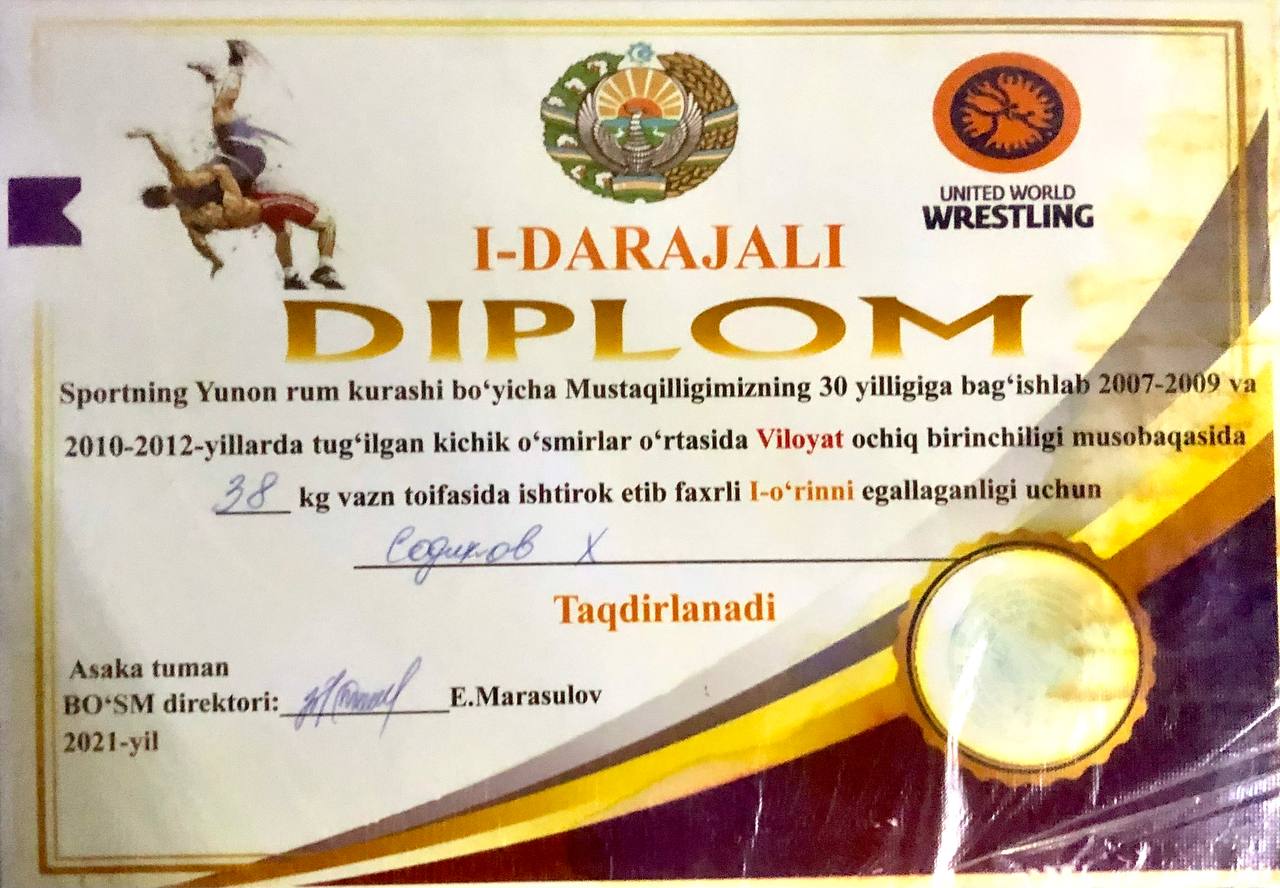 UNITED WORLD
WRESTLING
I-DARAJALI
DIPLOM
Sportning Yunon rum kurashi bo‘yicha Mustaqilligimizning 30 yilligiga bag‘ishlab 2007-2009 va
2010-2012-yillarda tug‘ilgan kichik o‘smirlar o‘rtasida Viloyat ochiq birinchiligi musobaqasida
38 kg vazn toifasida ishtirok etib faxrli I-o‘rinni egallaganligi uchun
Содиков Х
Taqdirlanadi
Asaka tuman
BO‘SM direktori: E.Marasulov
2021-yil